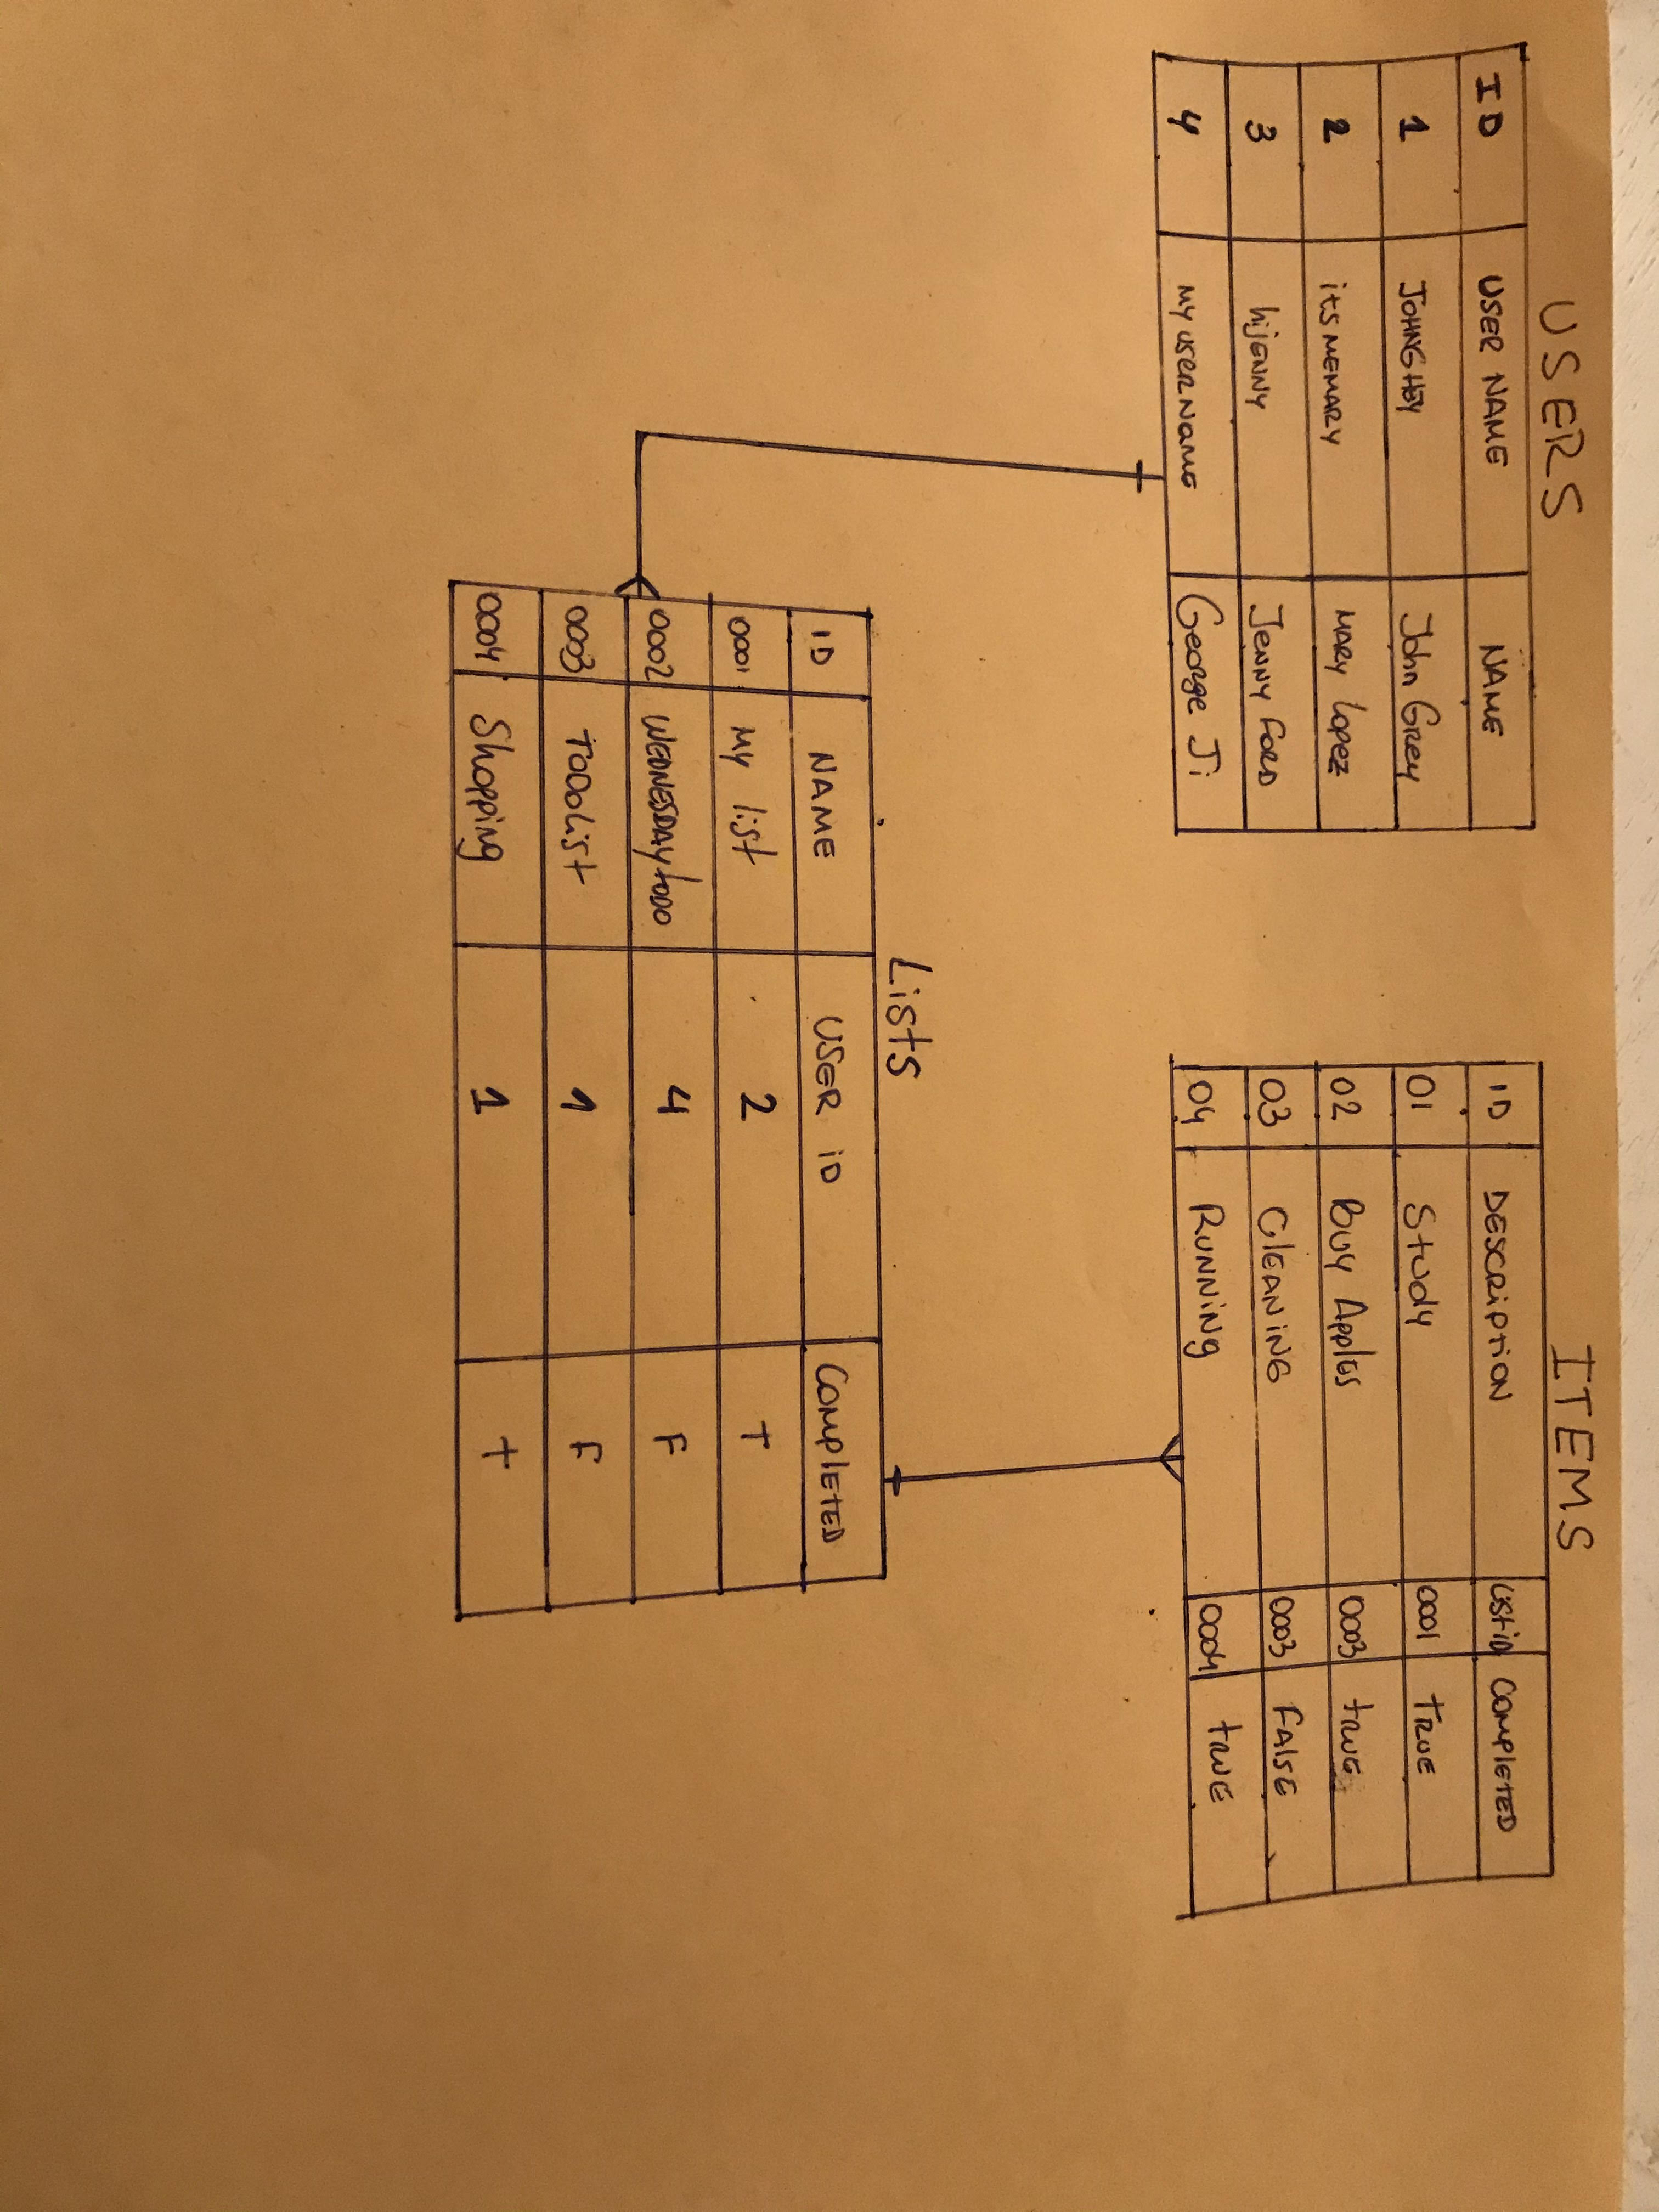 USERS
ID USER NAME NAME
1 John Grey
2 itsmemary MARY Lopez
3 hijENNY JENNY FORD
4 MY USERName George Ji
ITEMS
ID DESCRIPTION Listid COMPLETED
01 Study 0001 TRUE
02 Buy Apples 0003 truE
03 CLEANING 0003 FALSE
04 RUNNiNg 0004 truE
Lists
ID NAME USER iD COMPLETED
0001 MY list 2 T
0002 WEDNESDAYtoDO 4 F
0003 TODOList 1 F
0004 Shopping 1 T